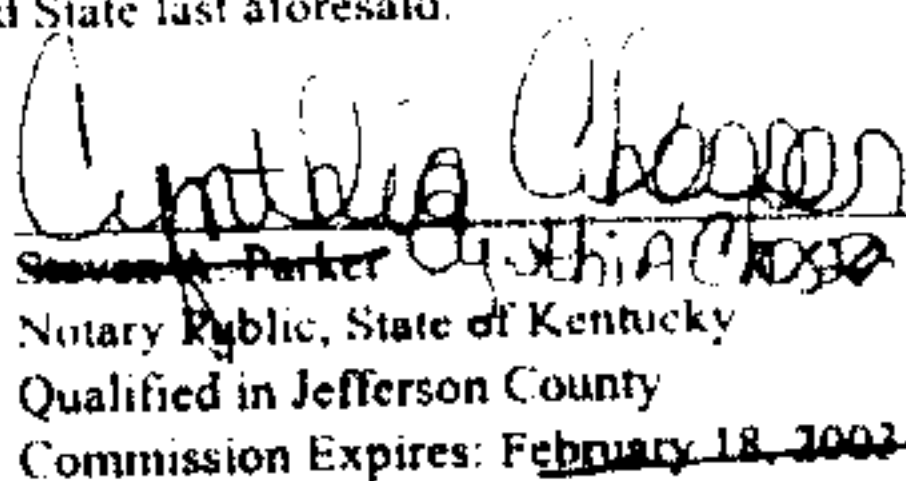 d State last aforesaid.
Cynthia
Steven A. Parker Cynthia
Notary Public, State of Kentucky
Qualified in Jefferson County
Commission Expires: February 18, 2002